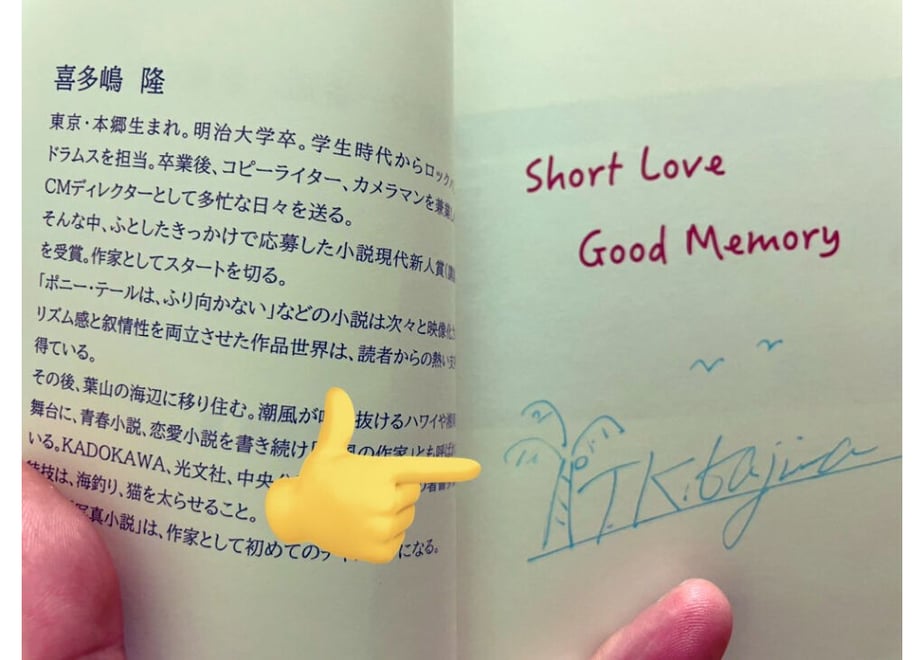 喜多嶋 隆
東京・本郷生まれ。明治大学卒。学生時代からロック
ドラムスを担当。卒業後、コピーライター、カメラマンを兼業
CMディレクターとして多忙な日々を送る。
そんな中、ふとしたきっかけで応募した小説現代新人賞
を受賞。作家としてスタートを切る。
「ポニー・テールは、ふり向かない」などの小説は次々と映像化
リズム感と叙情性を両立させた作品世界は、読者からの熱い
得ている。
その後、葉山の海辺に移り住む。潮風が 抜けるハワイや
舞台に、青春小説、恋愛小説を書き続け の作家」とも呼
いる。KADOKAWA、光文社、中央
は、海釣り、猫を太らせること。
写真小説」は、作家として初めての になる。
Short Love
Good Memory
T.Kitajima